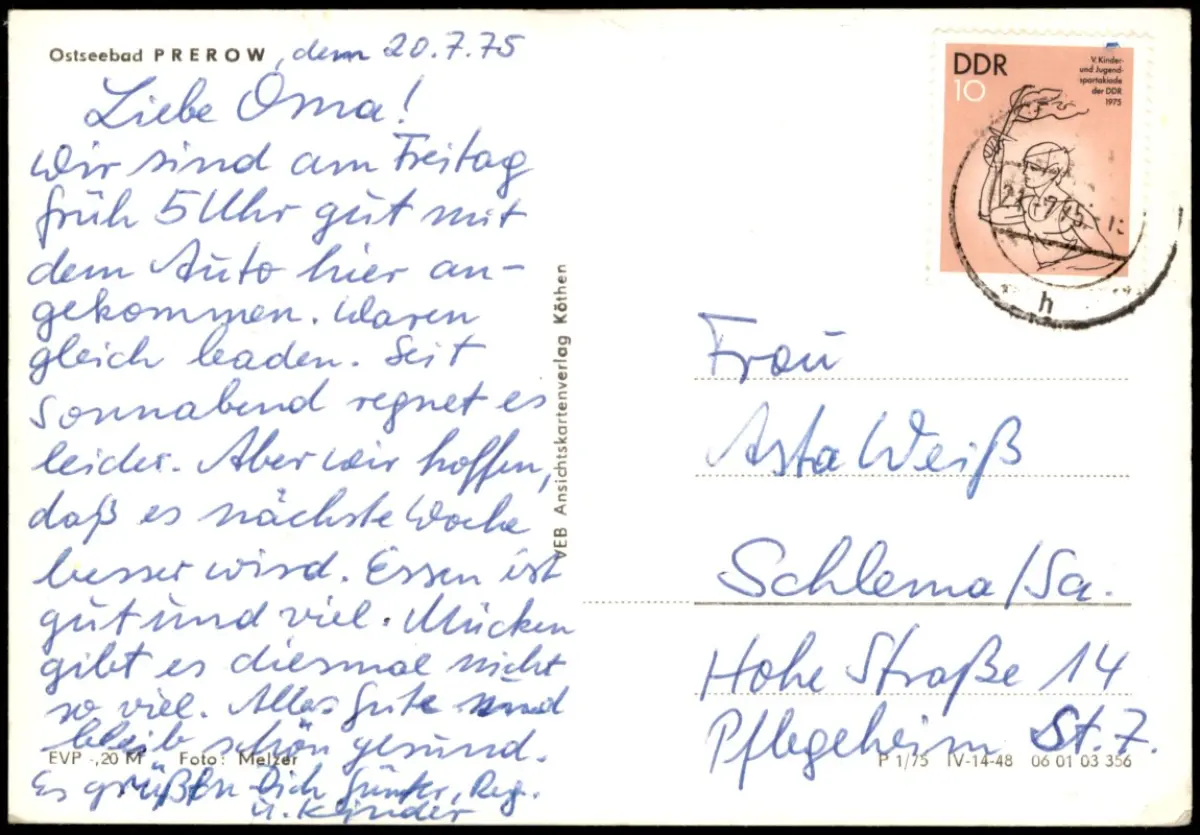 Ostseebad PREROW, dem 20.7.75
Liebe Oma!
Wir sind am Freitag
früh 5 Uhr gut mit
dem Auto hier an-
gekommen. Waren
gleich baden. Seit
Sonnabend regnet es
leider. Aber wir hoffen,
daß es nächste Woche
besser wird. Essen ist
gut und viel. Mücken
gibt es diesmal nicht
so viel. Alles Gute und
bleib schön gesund.
EVP -,20 M Foto: Melzer
Es grüßen Dich Günter, Reg.
u. Kinder
VEB Ansichtskartenverlag Köthen
DDR
10
V. Kinder-
und Jugend-
spartakiade
der DDR
1975
h
Frau
Asta Weiß
Schlema/Sa.
Hohe Straße 14
Pflegeheim St. 7.
P 1/75 IV-14-48 06 01 03 356